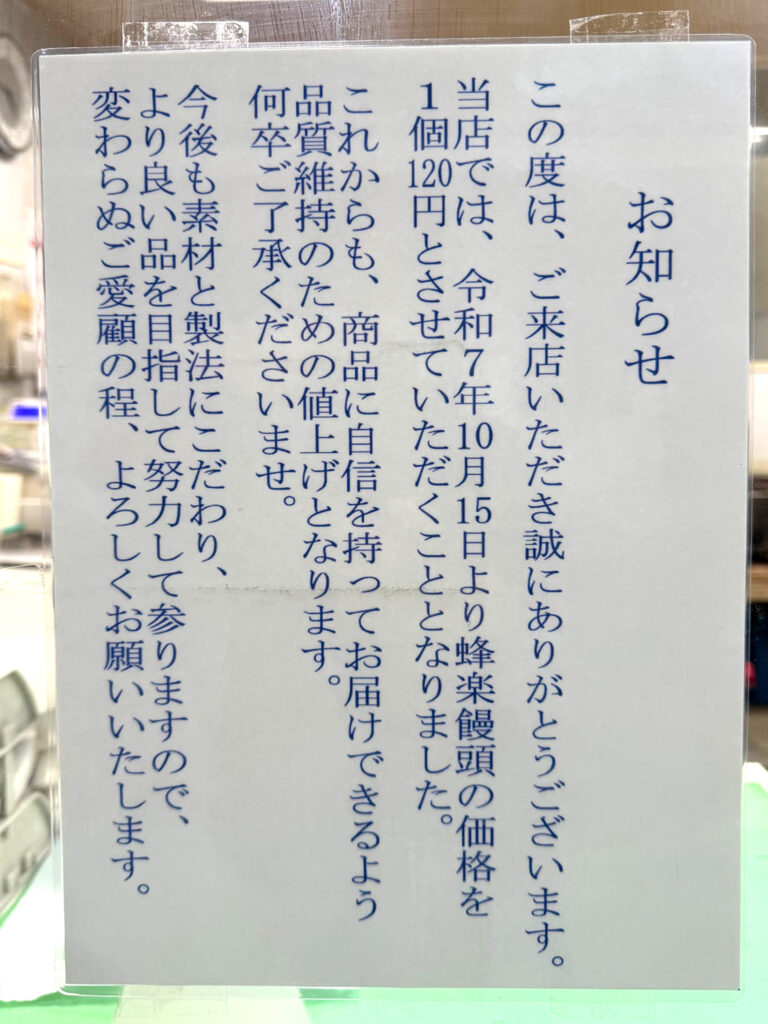 お知らせ
この度は、ご来店いただき誠にありがとうございます。
当店では、令和7年10月15日より蜂楽饅頭の価格を
1個120円とさせていただくこととなりました。
これからも、商品に自信を持ってお届けできるよう
品質維持のための値上げとなります。
何卒ご了承くださいませ。
今後も素材と製法にこだわり、
より良い品を目指して努力して参りますので、
変わらぬご愛顧の程、よろしくお願いいたします。